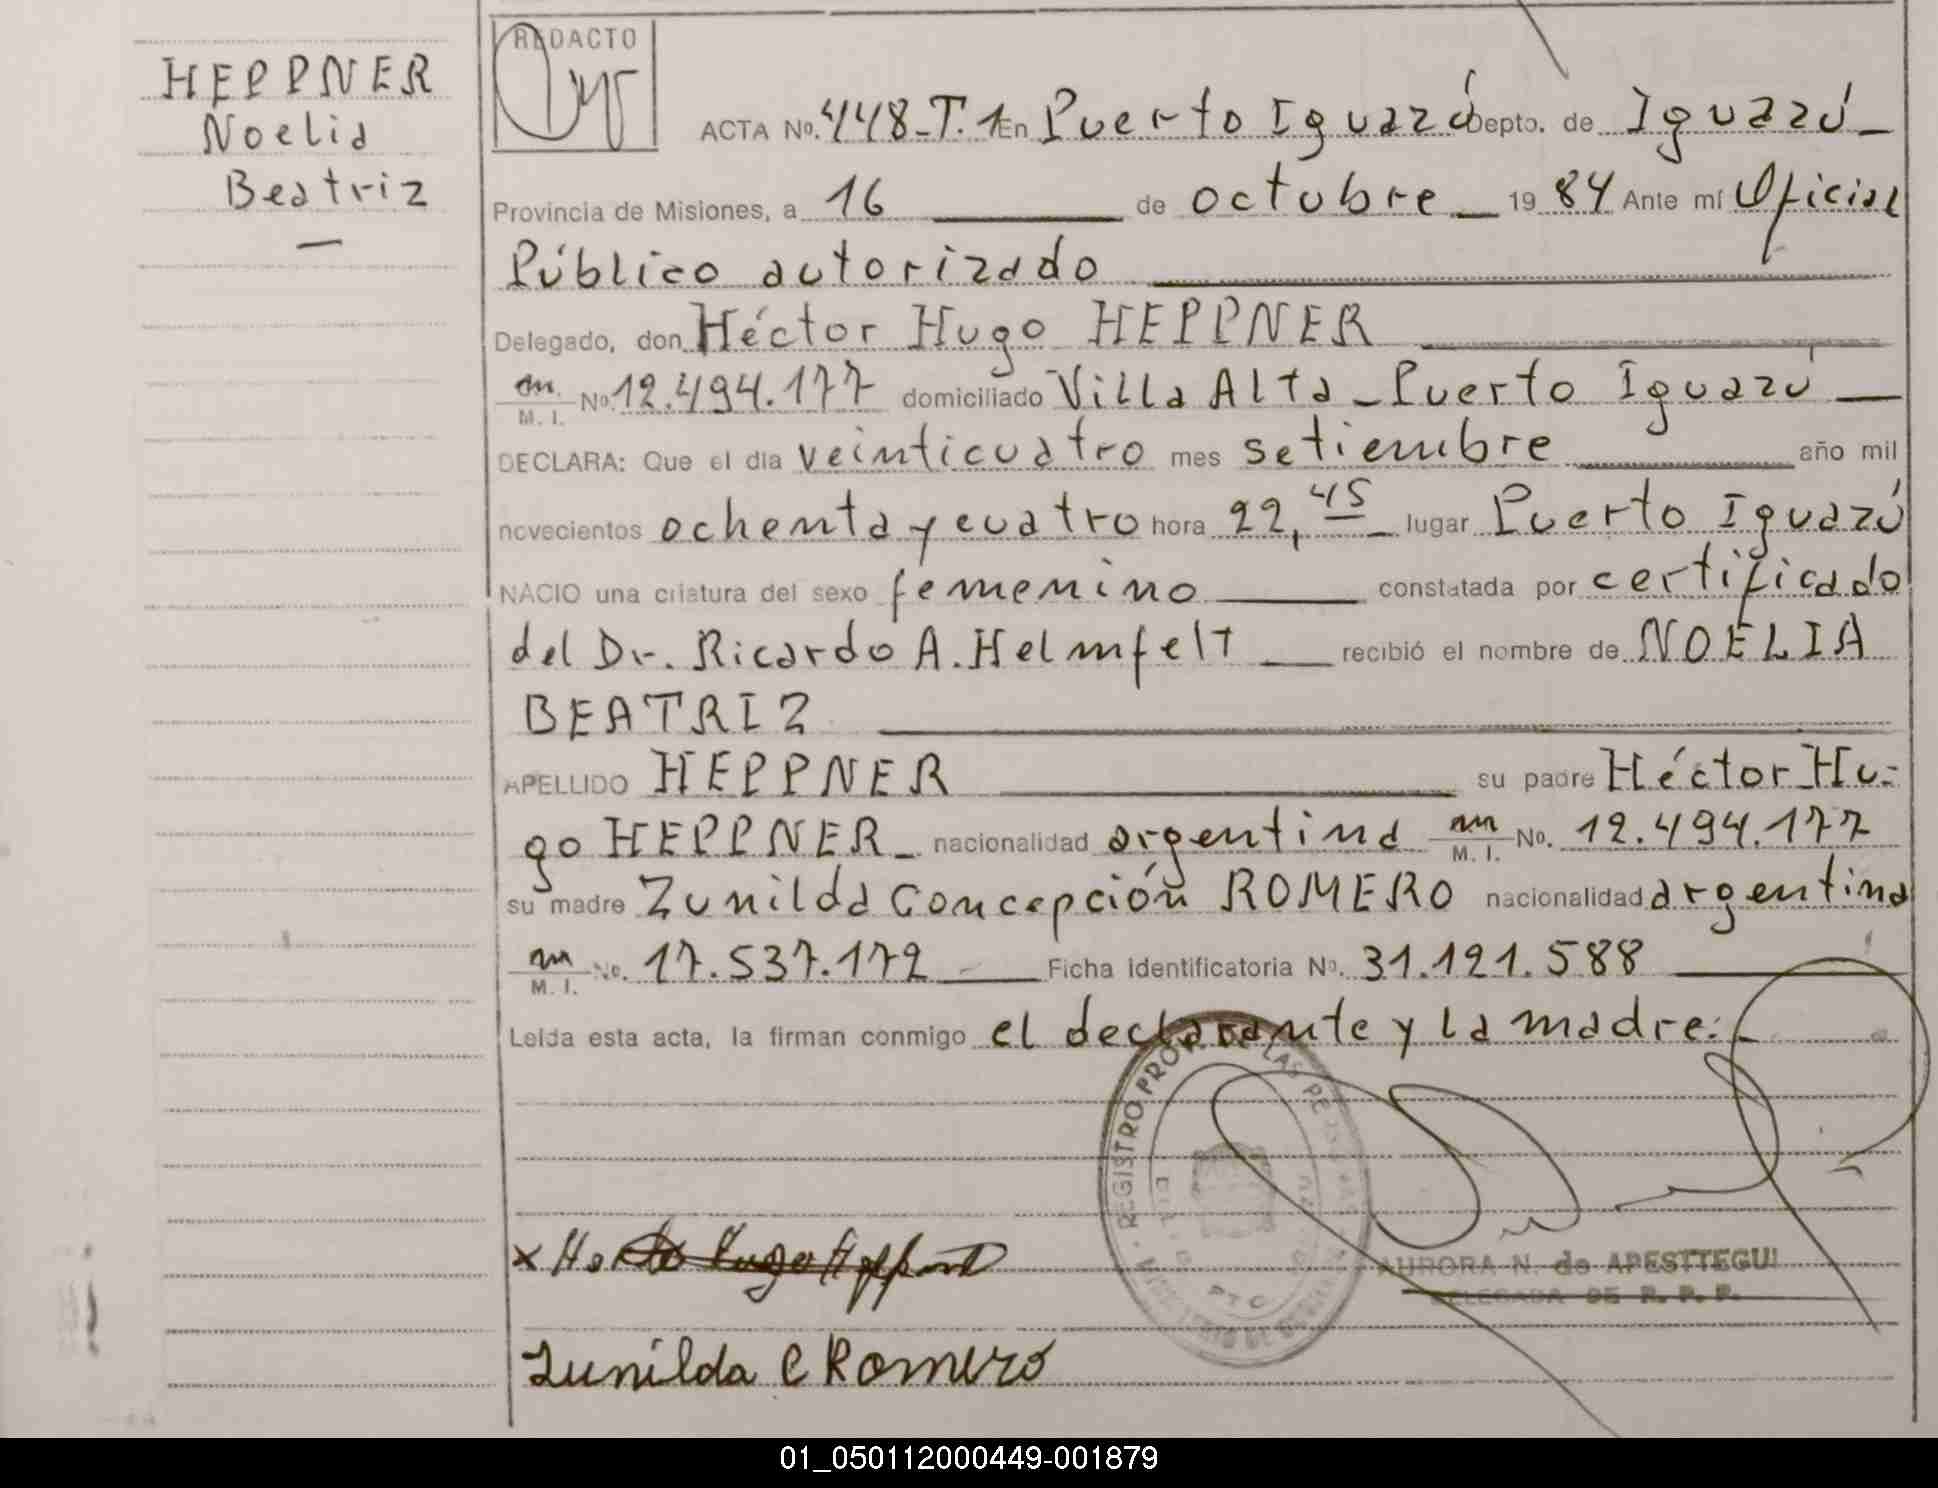 HEPPNER
Noelia
Beatriz
REDACTO
ACTA No. 448-T.1 En Puerto Iguazú Depto. de Iguazú
Provincia de Misiones, a 16 de octubre 1984 Ante mí Oficial
Público autorizado
Delegado, don Héctor Hugo HEPPNER
m. M. I. No. 12.494.177 domiciliado Villa Alta - Puerto Iguazú
DECLARA: Que el día veinticuatro mes setiembre año mil
novecientos ochenta y cuatro hora 22,45 lugar Puerto Iguazú
NACIO una criatura del sexo femenino constatada por certificado
del Dr. Ricardo A. Helmfelt recibió el nombre de NOELIA
BEATRIZ
APELLIDO HEPPNER su padre Héctor Hu-
go HEPPNER nacionalidad argentina m M. I. No. 12.494.177
su madre Zunilda Concepción ROMERO nacionalidad argentina
m M. I. No. 17.537.172 Ficha identificatoria No. 31.121.588
Leída esta acta, la firman conmigo el declarante y la madre.-
REGISTRO PROV. DE LAS PERSONAS
x Hector Hugo Heppner
Zunilda C Romero
AURORA N. de APESTTEGUI
DELEGADA DE R. P. P.
01_050112000449-001879